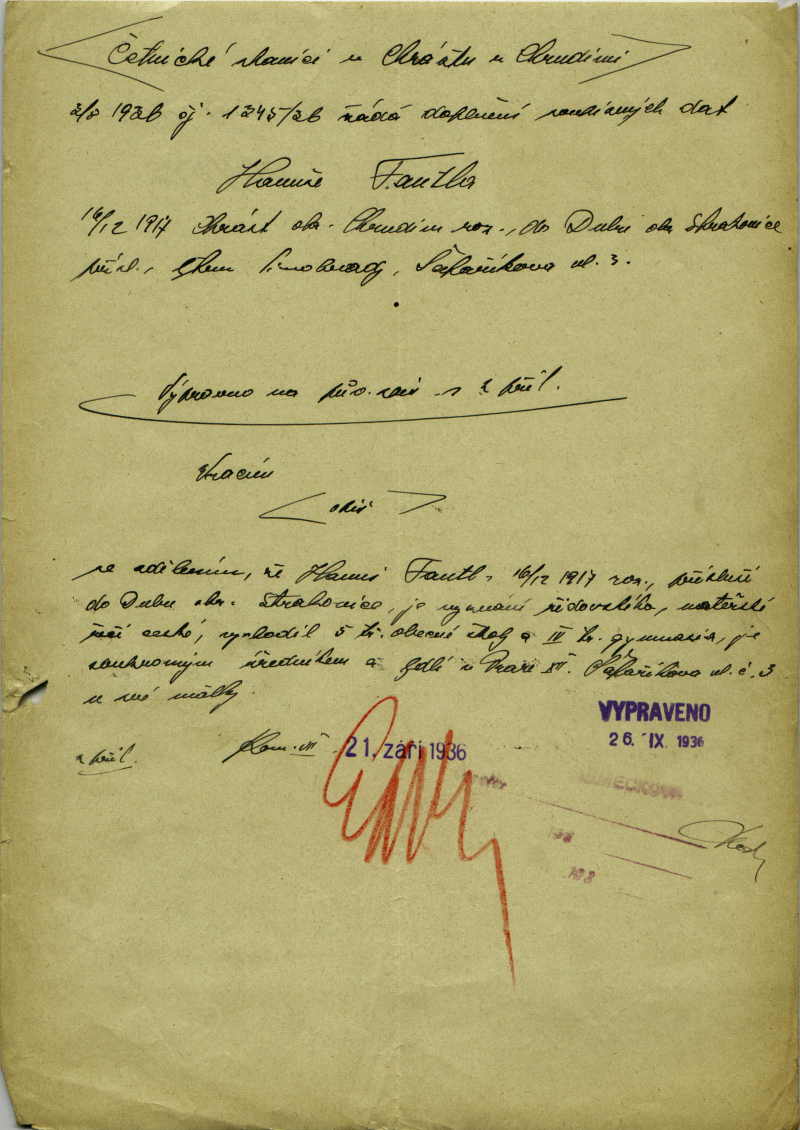 Četnické stanici v Chrástu u Chrudimi
3/8 1936 čj. 1345/36 žádá doplnění souvisných dat
Hanuše Fantla
16/12 1917 Chrást okr. Chrudim nar., do Dubu okr. Strakonice
přísl., Šafaříkova ul. 3.
Vypraveno na pův. spis s 2 příl.
Vracím
opis
se sdělením, že Hanuš Fantl, 16/12 1917 nar., přísluší
do Dubu okr. Strakonice, je vyznání židovského, mateřské
řeči české, vychodil 5 tř. obecné školy a IV tř. gymnasia, je
soukromým úředníkem a bydlí v Praze XII. Šafaříkova ul. č. 3
u své matky.
2 příl. Kom. 21. září 1936
VYPRAVENO
26. IX. 1936